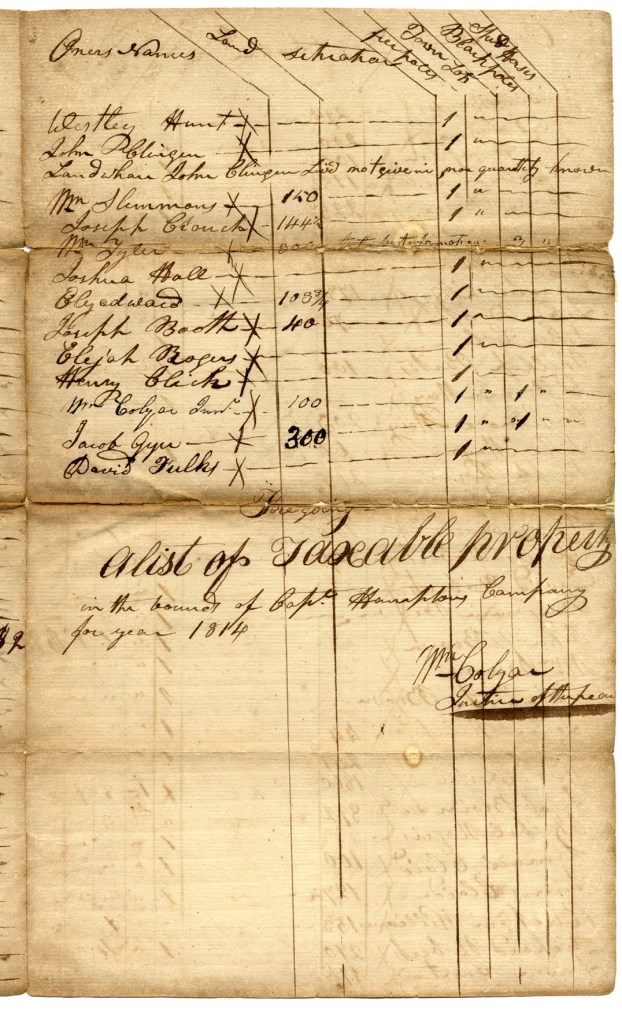 Oners Names Land situation free poles Town Lots Black poles Stud Horses
Westley Hunt X 1 "
John P Clingen X 1 "
Land whare John Clingen Live not give in nor quantity known
Wm Slimmons X 150 1 "
Joseph Crouch X 144½ 1 "
Wm Tyler X best information "
Joshua Hall X 1 "
Elyedward X 103¾ 1
Joseph Booth X 40 1 "
Elejah Rogers X 1 "
Henry Click X 1
Wm Colyar Junr. X 100 1 " 1 "
Jacob Gyer X 300 1 " 1 " "
David Fulks X 1 "
Fore going
a list of Taxable property
in the bounds of Capt. Hamptons Company
for year 1814
Wm Colyar
Justice of the pea